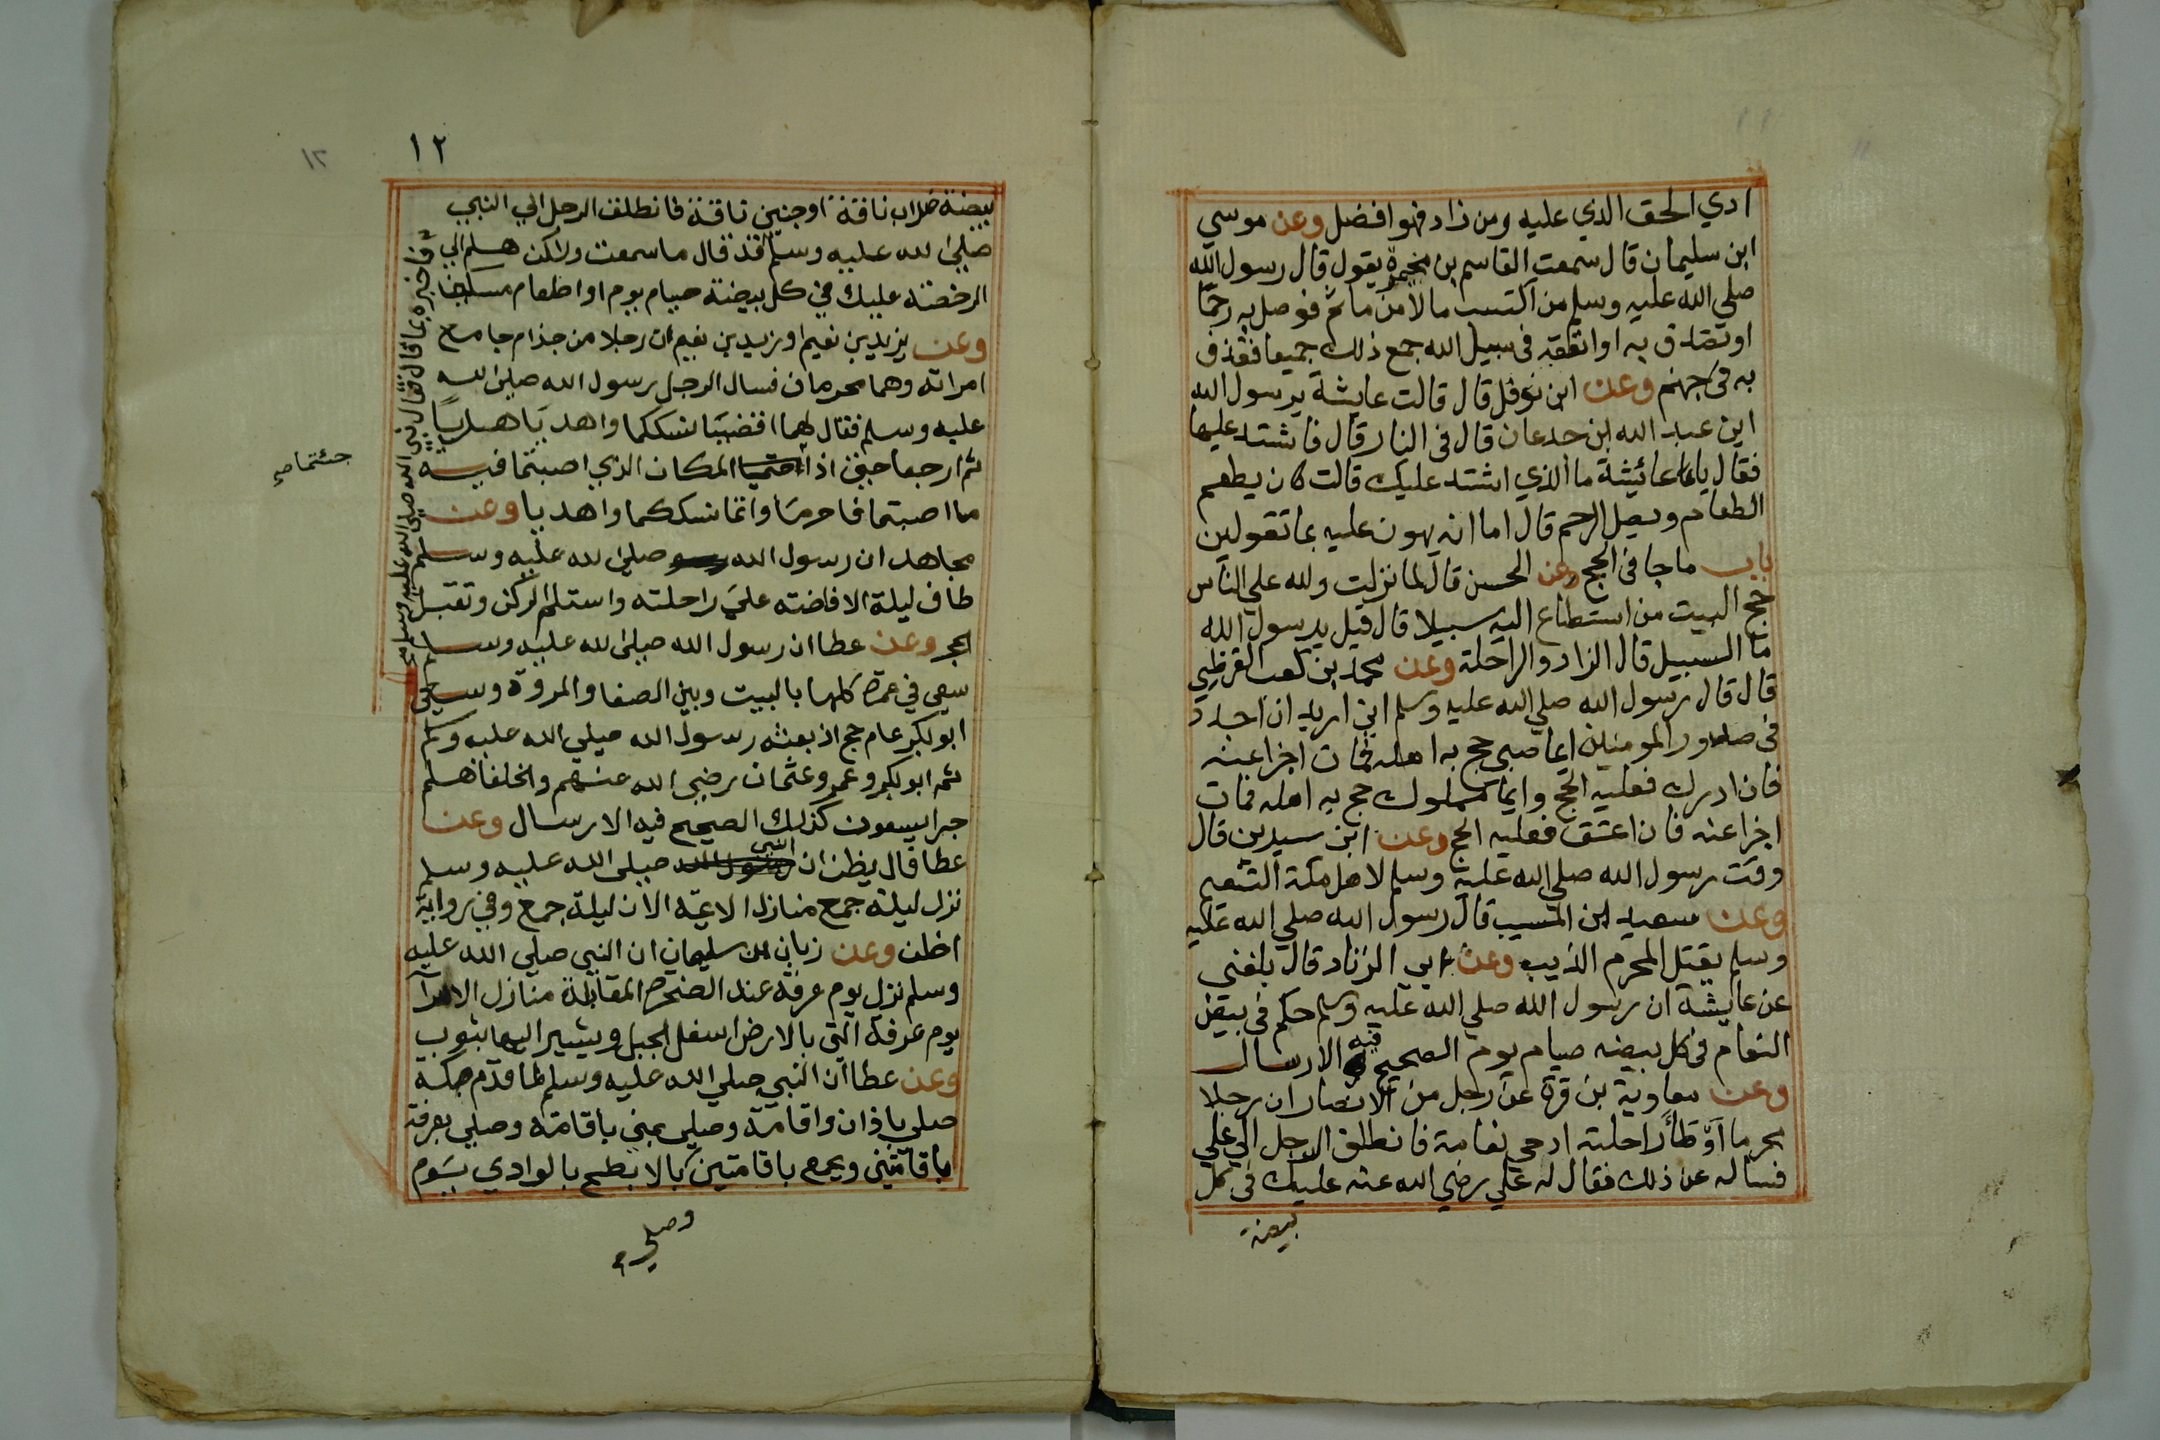 ادي الحق الذي عليه ومن زاد فهو افضل وعن موسي
ابن سليمان قال سمعت القاسم بن مخيمرة يقول قال رسول الله
صلي الله عليه وسلم من اكتسب مالا من ماثم فوصل به رحما
او تصدق به او انفقه في سبيل الله جمع ذلك جميعا فقذف
به في جهنم وعن ابن نوفل قال قالت عايشة يرسول الله
اين عبد الله ابن جدعان قال في النار قال فاشتد عليها
فقال يا عائيشة ما الذي اشتد عليك قالت كان يطعم
الطعام ويصل الرحم قال اما انه يهون عليه بما تقولين
باب ما جا في الحج وعن الحسن قال لما نزلت ولله علي الناس
حج البيت من استطاع اليه سبيلا قال قيل يرسول الله
ما السبيل قال الزاد والراحلة وعن محمد بن كعب القرظي
قال قال رسول الله صلي الله عليه وسلم اني اريد ان اجدد
في صدور المومنين ايما صبي حج به اهله فمات اجزا عنه
فان ادرك فعليه الحج وايما مملوك حج به اهله فمات
اجزا عنه فان اعتق فعليه الحج وعن ابن سيرين قال
وقت رسول الله صلي الله عليه وسلم لاهل مكة التنعيم
وعن سعيد ابن المسيب قال رسول الله صلي الله عليه
وسلم يقتل المحرم الذيب وعن ابي الزناد قال بلغني
عن عايشة ان رسول الله صلي الله عليه وسلم حكم في بيض
النعام في كل بيضه صيام يوم الصحيح فيه الارسال
وعن معاوية بن قرة عن رجل من الانصار ان رجلا
محرما اوطأ راحلته ادحي نعامة فانطلق الرجل الي علي
فساله عن ذلك فقال له علي رضي الله عنه عليك في كل
بيضة
١٢
١٢
بيضة ضراب ناقة او جنين ناقة فانطلق الرجل الي النبي
صلي الله عليه وسلم قد قال ما سمعت ولاكن هلم الي
الرخصة عليك في كل بيضة صيام يوم او اطعام مسكين
وعن يزيد بن نعيم او زيد بن نعيم ان رجلا من جذام جامع
امراته وهما محرمان فسال الرجل رسول الله صلي الله
عليه وسلم فقال لهما اقضيا نسككما واهديا هديا
ثم ارجعا حتي اذا المكان الذي اصبتما فيه
ما اصبتما فاحرما واتما نسككما واهديا وعن
مجاهد ان رسول الله صلي الله عليه وسلم
طاف ليلة الافاضة علي راحلته واستلم الركن وتقبل
الحجر وعن عطا ان رسول الله صلي الله عليه وسلم
سعي في عمره كلها بالبيت وبين الصفا والمروة وسعي
ابو بكر عام حج اذ بعثه رسول الله صلي الله عليه وسلم
ثم ابو بكر وعمر وعثمان رضي الله عنهم والخلفا هلم
جرا يسعون كذلك الصحيح فيه الارسال وعن
عطا قال يظن ان النبي صلي الله عليه وسلم
نزل ليلة جمع منازل الايمه الان ليلة جمع وفي رواية
اظن وعن زبان بن سليمان ان النبي صلي الله عليه
وسلم نزل يوم عرفة عند الصخرة المقابلة منازل الامرآ
يوم عرفة التي بالارض اسفل الجبل ويشير اليها بثوب
وعن عطا ان النبي صلي الله عليه وسلم لما قدم مكة
صلي باذان واقامة وصلي بمني باقامة وصلي بعرفة
باقامتين وبجمع باقامتين بالابطح بالوادي يوم
وصلي
فاخبره بما قال فقال نبي الله صلي الله عليه وسلم
جئتما صح